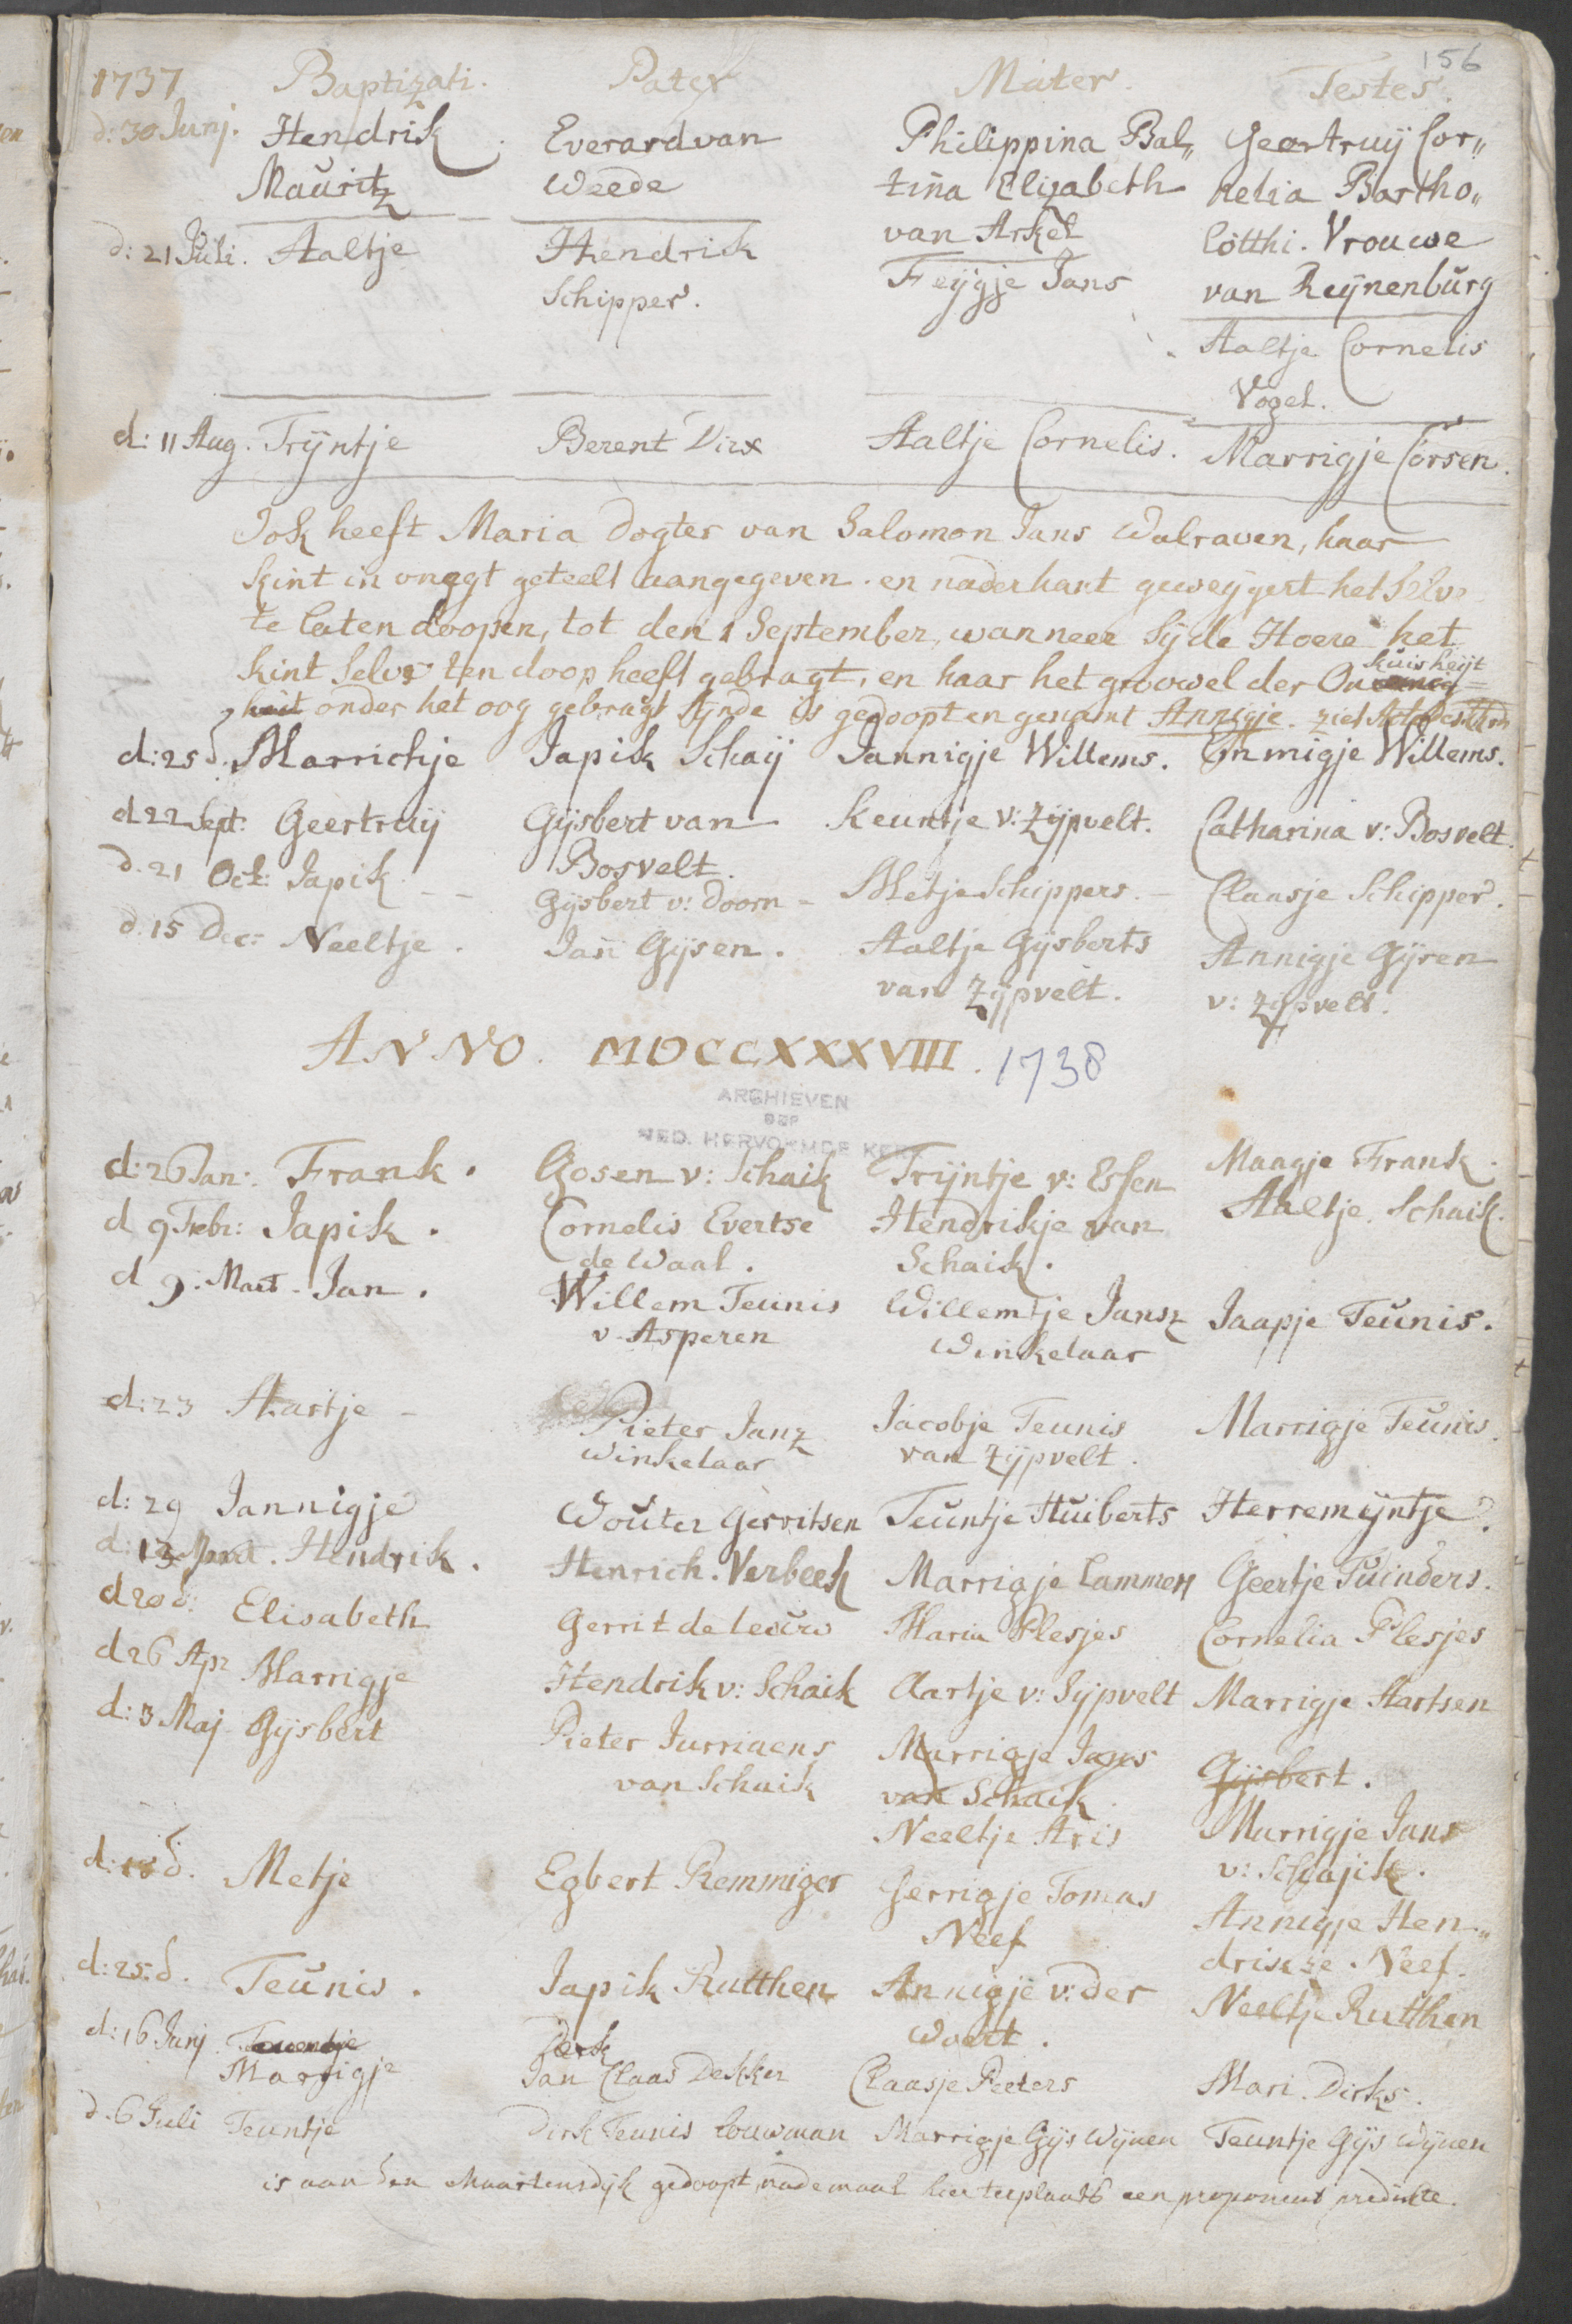 156
1737 Baptizati. Pater Mater. Testes.
d: 30 Junj. Hendrik Everard van Philippina Bal„ Geertruij Cor„
Mauritz Weede tina Elizabeth nelia Bartho„
van Arkel lotthi. Vrouwe
d: 21 Juli. Aaltje Hendrik Feijgje Jans van Reijnenburg
Schipper.
Aaltje Cornelis
Vogel.
d: 11 Aug. Trijntje Berent Dirx Aaltje Cornelis. Marrigje Corsen.
Jok heeft Maria dogter van Salomon Jans Walraven, haar
kint in onegt geteelt aangegeven. en naderhant geweijgert het selve
te laten doopen, tot den 1 September, wanneer sij de Hoere het
kint selvs ten doop heeft gebragt, en haar het grouwel der On kuisheijt
heit onder het oog gebragt sijnde is gedoopt en genamt Annigje. ziet Acta
d: 25 d. Marrichje Japik Schaij Jannigje Willems. Emmigje Willems.
d 22 Sept: Geertruij Gijsbert van Keuntje v: Zijpvelt. Catharina v: Bosvelt.
Bosvelt.
d. 21 Oct: Japik Gijsbert v: Doorn - Metje Schippers. Claasje Schipper.
d. 15 Dec: Neeltje. Jan Gijsen. Aaltje Gijsberts Annigje Gijsen
van Zijpvelt. v: Zijpvelt.
ANNO. MDCCXXXVIII. 1738
ARCHIEVEN
DER
NED. HERVORMDE KERK
d: 26 Jan: Frank. Gosen v: Schaik Trijntje v: Essen Maagje Frank.
d 9 Febr: Japik. Cornelis Evertse Hendrikje van Aaltje. Schaik.
de Waal. Schaik.
d 9. Mart. Jan. Willem Teunis Willemtje Jansz Jaapje Teunis.
v. Asperen Winkelaar
d: 23 Aartje - Pieter Janz Jacobje Teunis Marrigje Teunis.
Winkelaar van Zijpvelt.
d: 29 Jannigje Wouter Gerritsen Teuntje Huiberts Herremeijntje.
d: 13 Hendrik. Henrich. Verbeek Marrigje Lammers Geertje Puinders.
d 20 d: Elisabeth Gerrit de Leeuw Maria Plesjes Cornelia Plesjes
d 26 Apr Marrigje Hendrik v: Schaik Aartje v: Sijpvelt Marrigje Aartsen
d: 3 Maj. Gijsbert Pieter Jurriaens Marrigje Jans Gijsbert.
van Schaik van Schaik.
Neeltje Aris Marrigje Jans
v: Schajik.
d: 18 d. Metje Egbert Remmiger Gerrigje Tomas Annigje Hen„
Neef drikze Neef.
d: 25. d. Teunis. Japik Rutthen Annigje v: der Neeltje Rutthen
Woert.
d: 16 Junj Teuentje Derk
Marrigje Jan Claas Dekker Claasje Peeters Mari. Dirks.
d. 6 Juli Teuntje Dirk Teunis Bouwman Marrigje Gijs Wijnen Teuntje Gijs Wijnen
is aan den Maartensdijk gedoopt, nademaal hier ter plaats een proponent predikte.